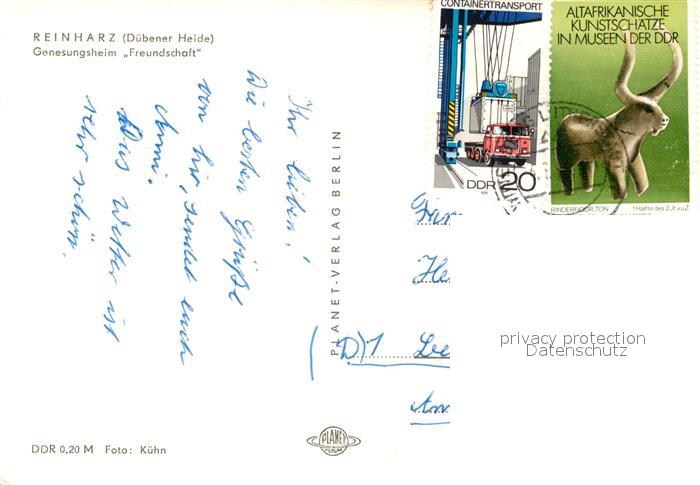 REINHARZ (Dübener Heide)
Genesungsheim „Freundschaft"
Ihr lieben!
Die besten Grüße
von hir, sendet euch
Das Wetter ist
sehr schön.
PLANET-VERLAG BERLIN
CONTAINERTRANSPORT
DDR 20
ALTAFRIKANISCHE
KUNSTSCHÄTZE
IN MUSEEN DER DDR
RINDERFIGUR, TON 1. Hälfte des 2. Jt. v. u. Z.
Fam
He
D)1 Be
privacy protection
Datenschutz
PLANET
BERLIN
DDR 0,20 M Foto: Kühn